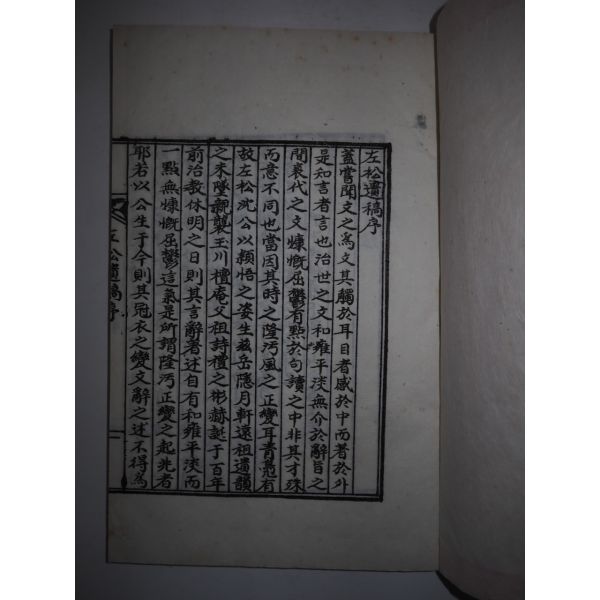 左松遺稿序
蓋嘗聞文之爲文其觸於耳目者感於中而著於外
是和言者言也治世之文和雍平淡無介於辭旨之
間衰代之文慷慨屈鬱有點於句讀之中非其才殊
而意不同也當因其時之隆汚風之正變耳靑鳧有
故左松沈公以穎悟之姿生玆岳隱月軒遠祖遺韻
之未墜親襲玉川檀庵父祖詩禮之彬赫誕于百年
前治敎休明之日則其言辭著述自有和雍平淡而
一點無慷慨屈鬱這氣是所謂隆汚正變之起兆者
耶若以公生于今則其冠衣之變文辭之述不得爲
左松遺稿序